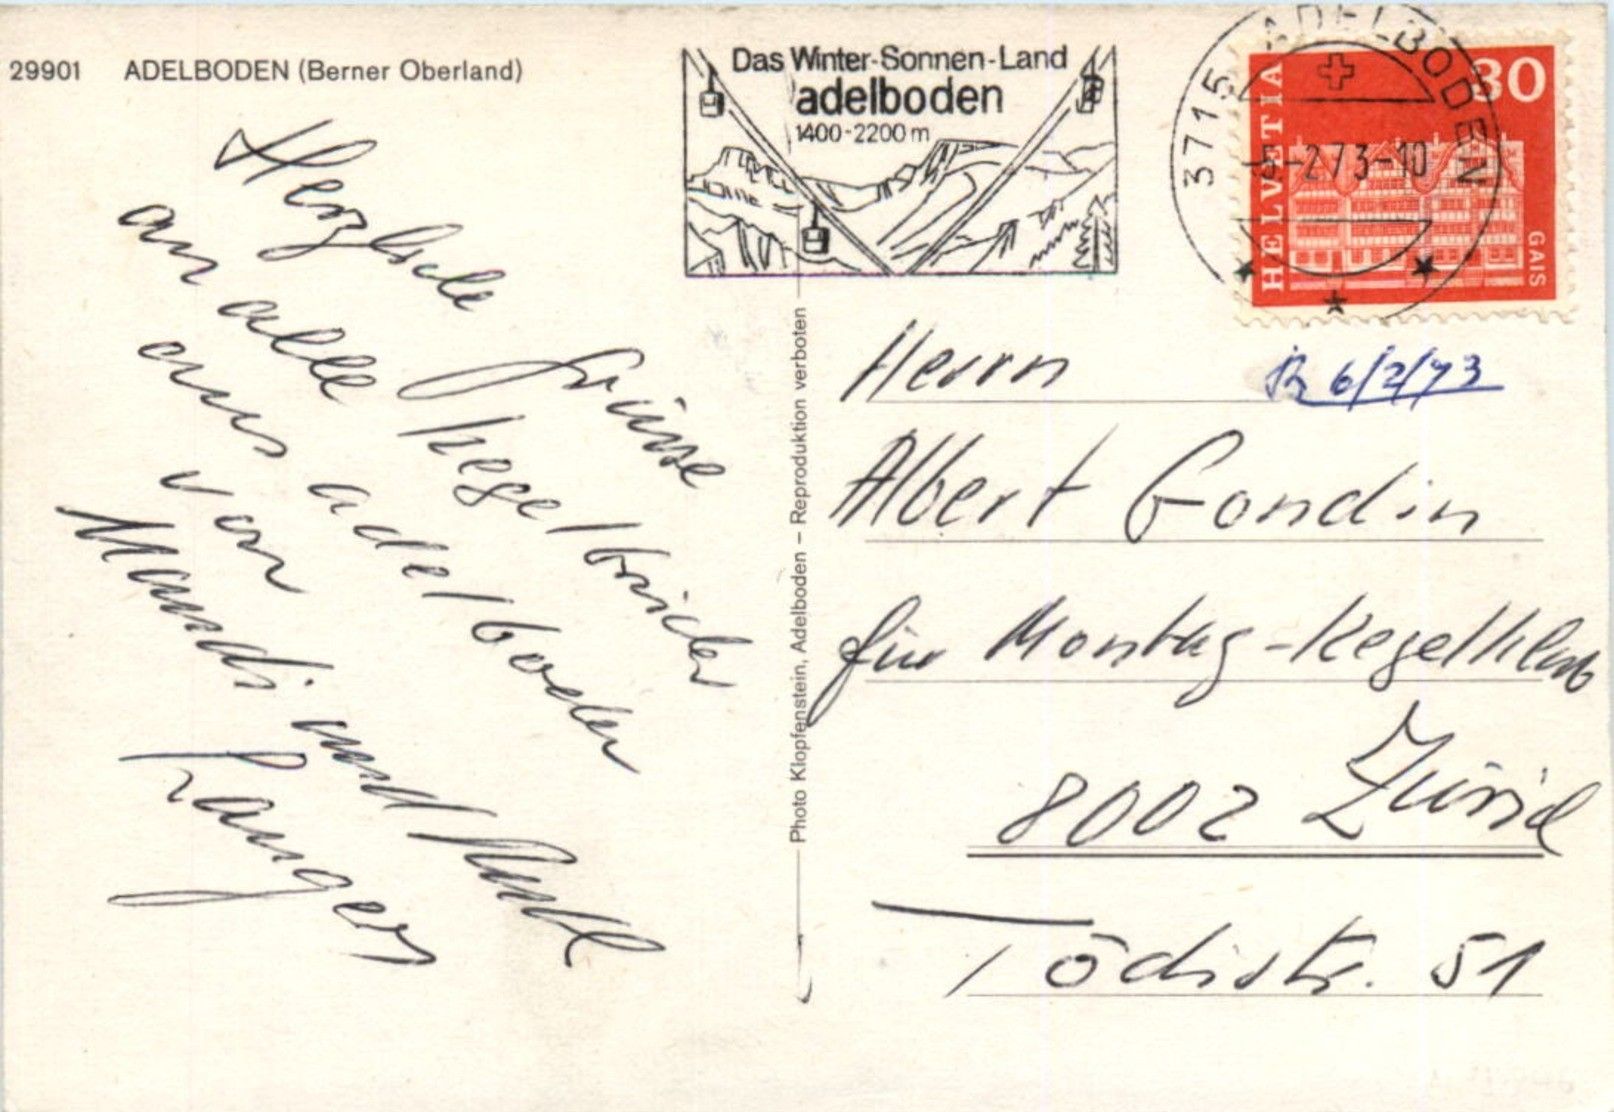 29901 ADELBODEN (Berner Oberland)
Das Winter-Sonnen-Land
adelboden
1400-2200 m
3715 ADELBODEN
5-2.73-10
HELVETIA
30
GAIS
Herzliche Grüsse
an alle Kegelbrüder
aus adelboden
von
Mandi und
Langer
Photo Klopfenstein, Adelboden – Reproduktion verboten
Herrn
6/2/73
Albert Gondin
für Montag-Kegelklub
8002 Zürich
Tödistr. 51